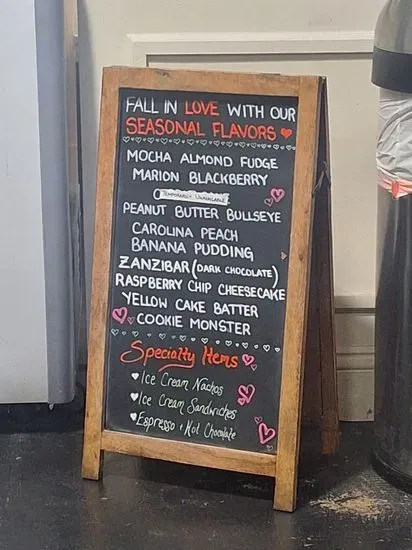 FALL IN LOVE WITH OUR
SEASONAL FLAVORS
MOCHA ALMOND FUDGE
MARION BLACKBERRY
TEMPORARILY UNAVAILABLE
PEANUT BUTTER BULLSEYE
CAROLINA PEACH
BANANA PUDDING
ZANZIBAR (DARK CHOCOLATE)
RASPBERRY CHIP CHEESECAKE
YELLOW CAKE BATTER
COOKIE MONSTER
Specialty Items
Ice Cream Nachos
Ice Cream Sandwiches
Espresso + Hot Chocolate